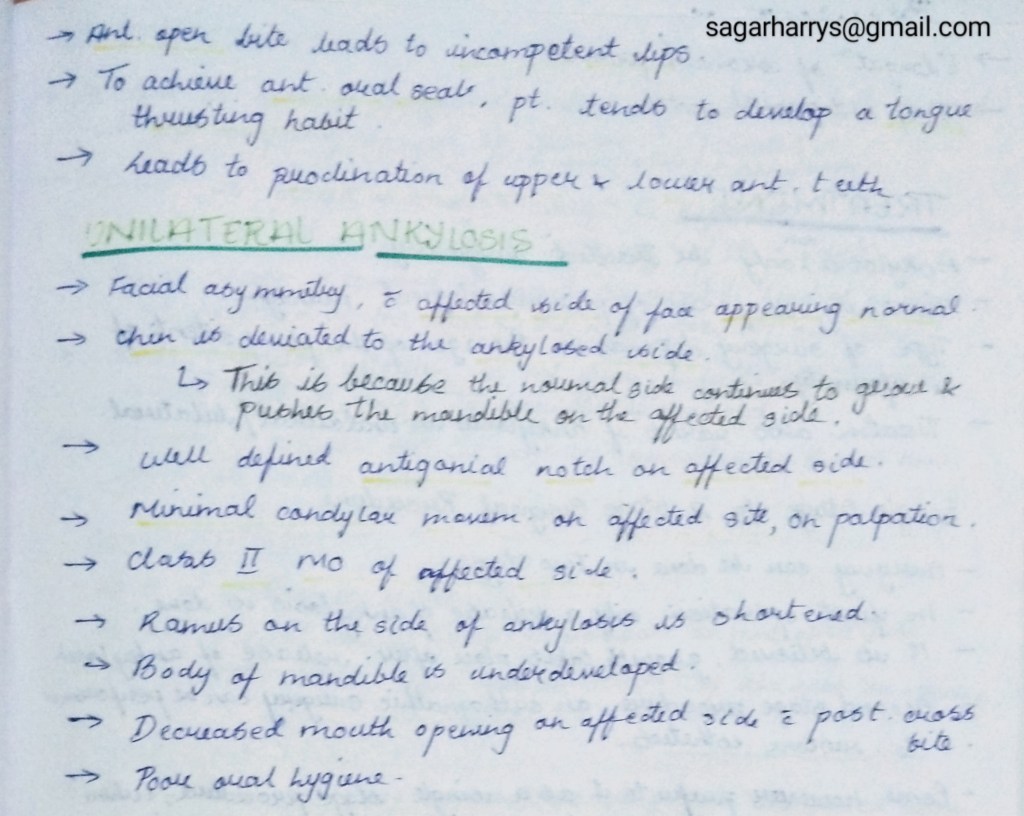 sagarharrys@gmail.com
→ Ant. open bite leads to incompetent lips.
→ To achieve ant. oral seal, pt. tends to develop a tongue
thrusting habit.
→ Leads to proclination of upper & lower ant. teeth.
UNILATERAL ANKYLOSIS
→ Facial asymmetry, c̄ affected side of face appearing normal.
→ Chin is deviated to the ankylosed side.
↳ This is because the normal side continues to grow &
pushes the mandible on the affected side.
→ Well defined antigonial notch on affected side.
→ Minimal condylar movem on affected site, on palpation.
→ Class II MO of affected side.
→ Ramus on the side of ankylosis is shortened.
→ Body of mandible is underdeveloped.
→ Decreased mouth opening on affected side c̄ post. cross
bite.
→ Poor oral hygiene.